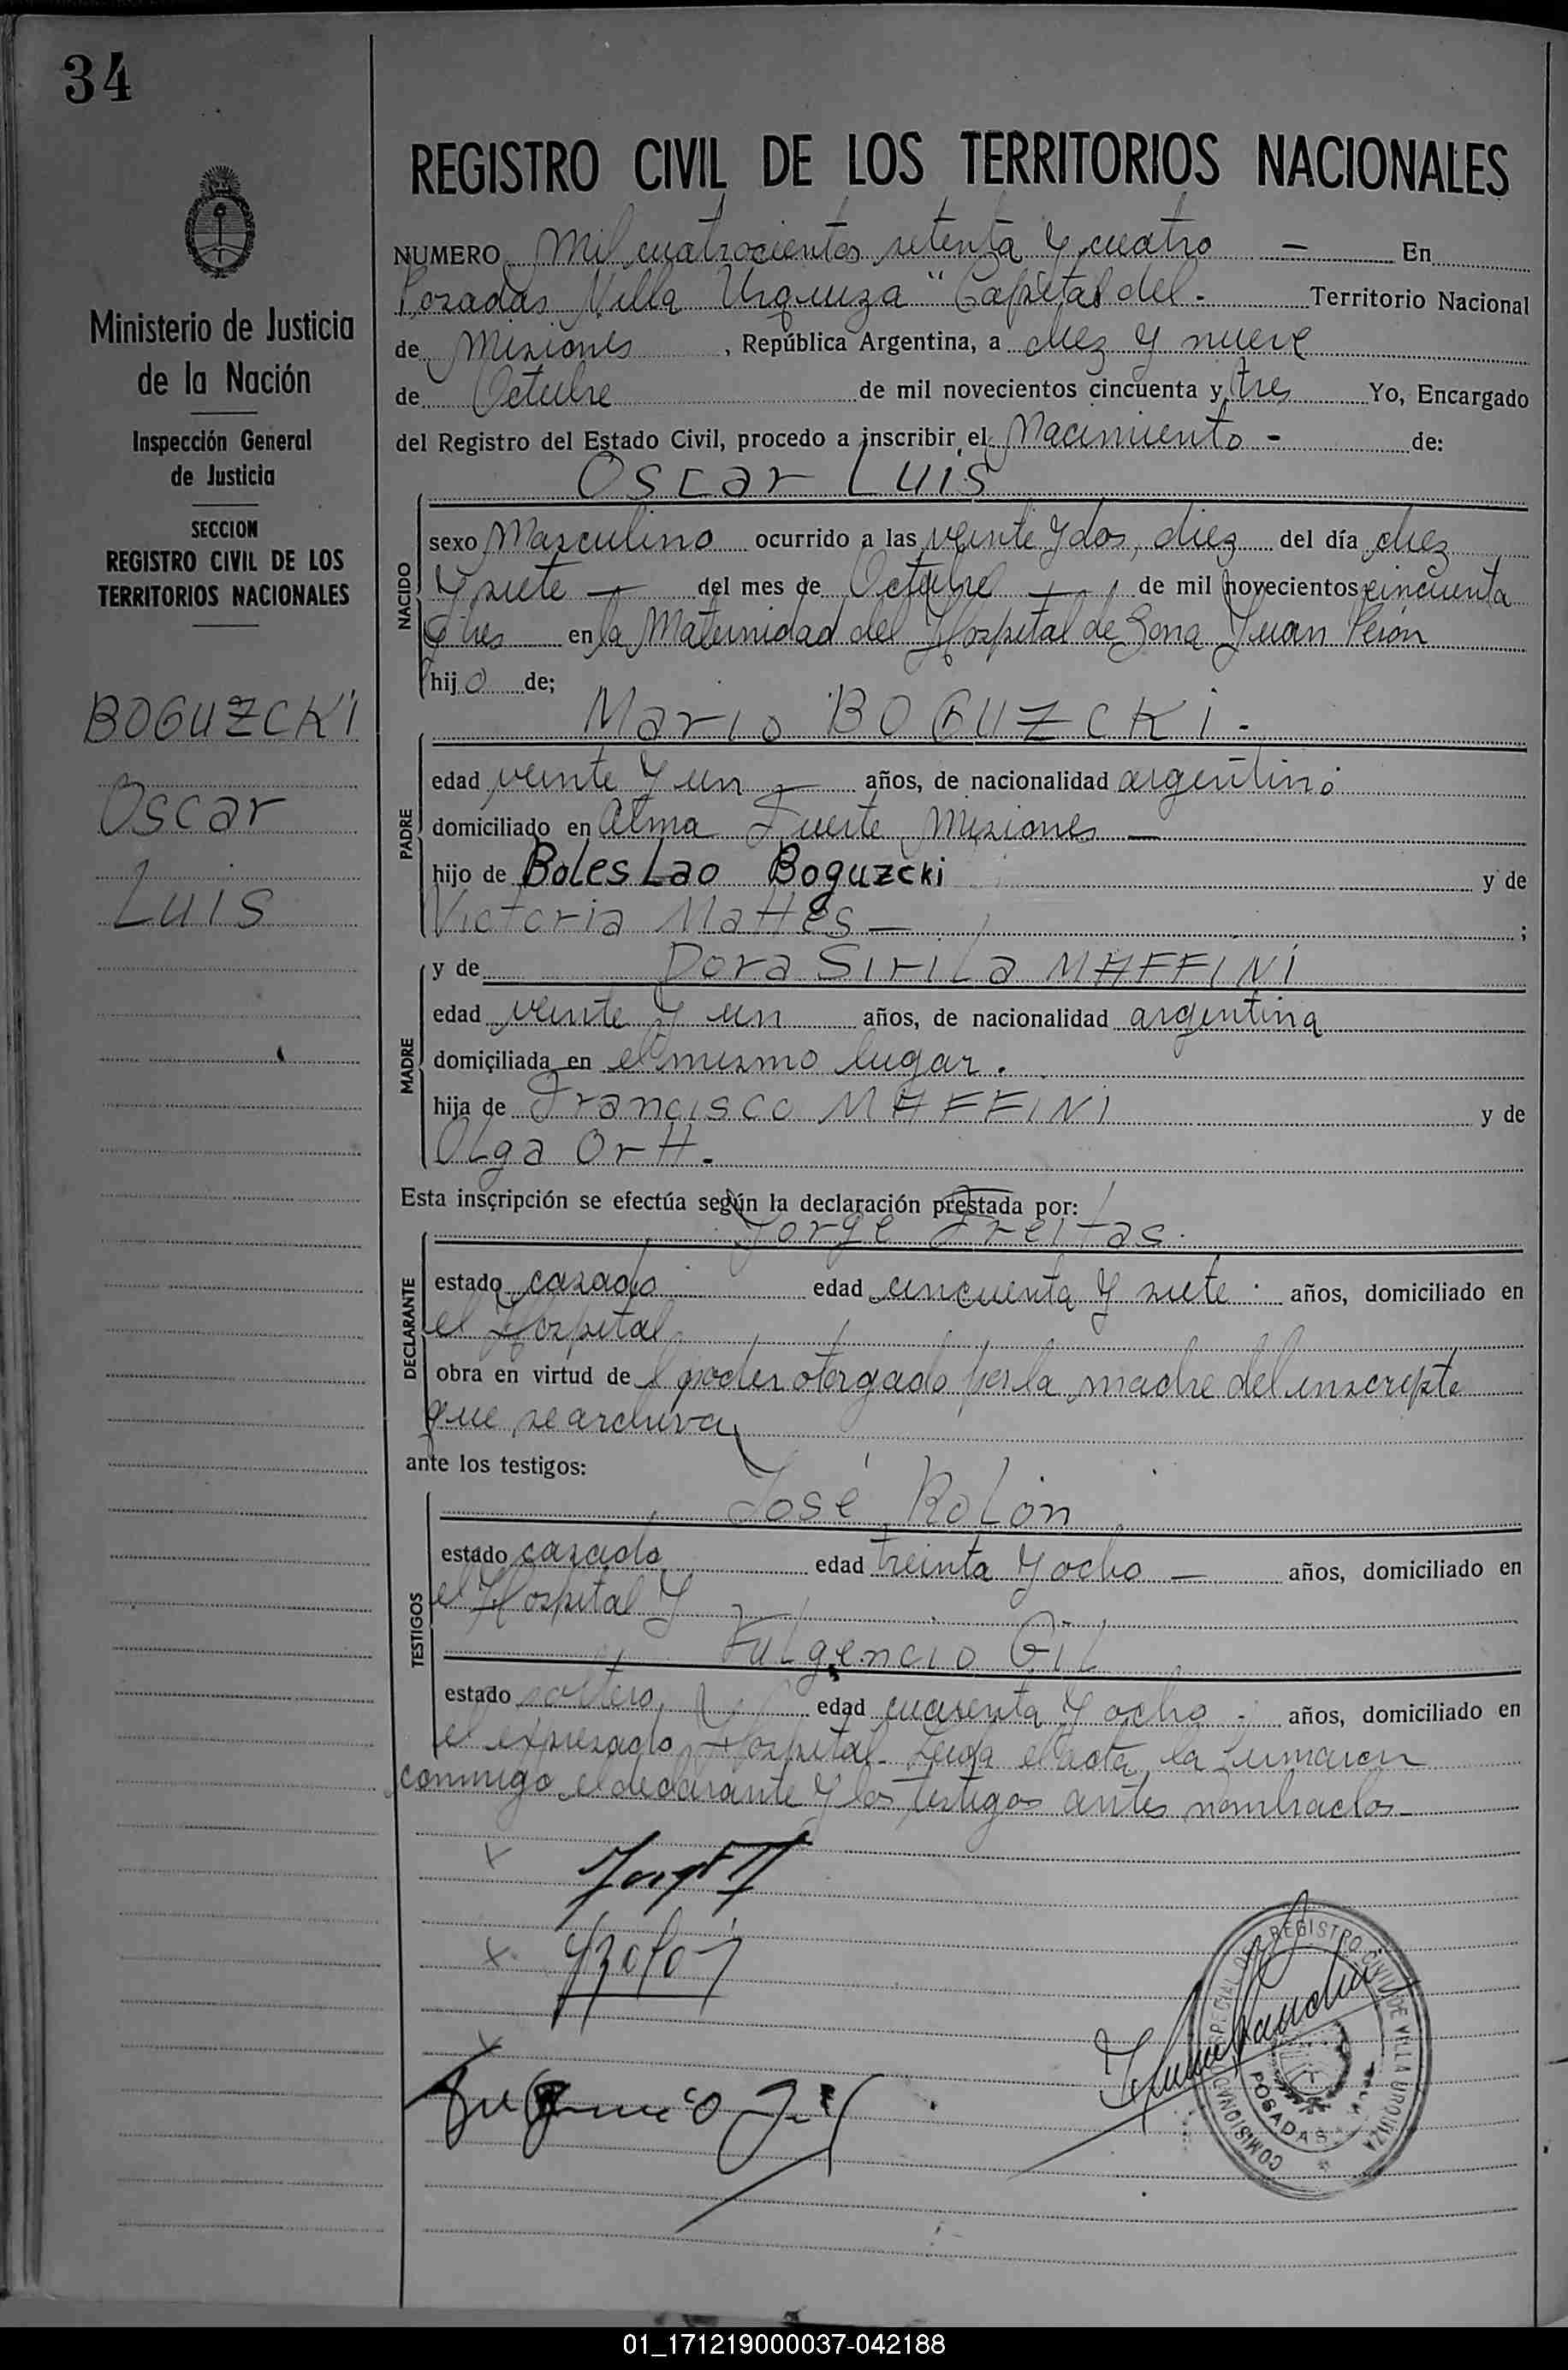 34
REGISTRO CIVIL DE LOS TERRITORIOS NACIONALES
Ministerio de Justicia
de la Nación
Inspección General
de Justicia
SECCION
REGISTRO CIVIL DE LOS
TERRITORIOS NACIONALES
BOGUZCKI
Oscar
Luis
NUMERO Mil cuatrocientos setenta y cuatro — En
Posadas Villa Urquiza "Capital del - Territorio Nacional
de Misiones, República Argentina, a diez y nueve
de Octubre de mil novecientos cincuenta y tres Yo, Encargado
del Registro del Estado Civil, procedo a inscribir el Nacimiento - de:
Oscar Luis
NACIDO
sexo Masculino ocurrido a las veinte y dos, diez del día diez
y siete — del mes de Octubre — de mil novecientos cincuenta
y tres en la Maternidad del Hospital de Zona Juan Perón
hijo de;
Mario BOGUZCKI -
PADRE
edad veinte y un — años, de nacionalidad argentino
domiciliado en Alma Fuerte Misiones —
hijo de Boleslao Boguzcki y de
Victoria Mattes — ;
MADRE
y de Dora Sirila MAFFINI
edad veinte y un años, de nacionalidad argentina
domiciliada en el mismo lugar.
hija de Francisco MAFFINI y de
Olga Ortt.
Esta inscripción se efectúa según la declaración prestada por:
Jorge Freitas.
DECLARANTE
estado casado edad cincuenta y siete años, domiciliado en
el Hospital
obra en virtud del poder otorgado por la madre del inscripto
que se archiva
ante los testigos:
José Rolón
TESTIGOS
estado casado edad treinta y ocho — años, domiciliado en
el Hospital y
Fulgencio Gil
estado soltero, edad cuarenta y ocho - años, domiciliado en
el expresado Hospital. Leida el acta, la firmaron
conmigo el declarante y los testigos antes nombrados—
x
x
x
Fulgencio Gil
COMISION ESPECIAL DEL REGISTRO CIVIL DE VILLA URQUIZA
POSADAS
01_171219000037-042188